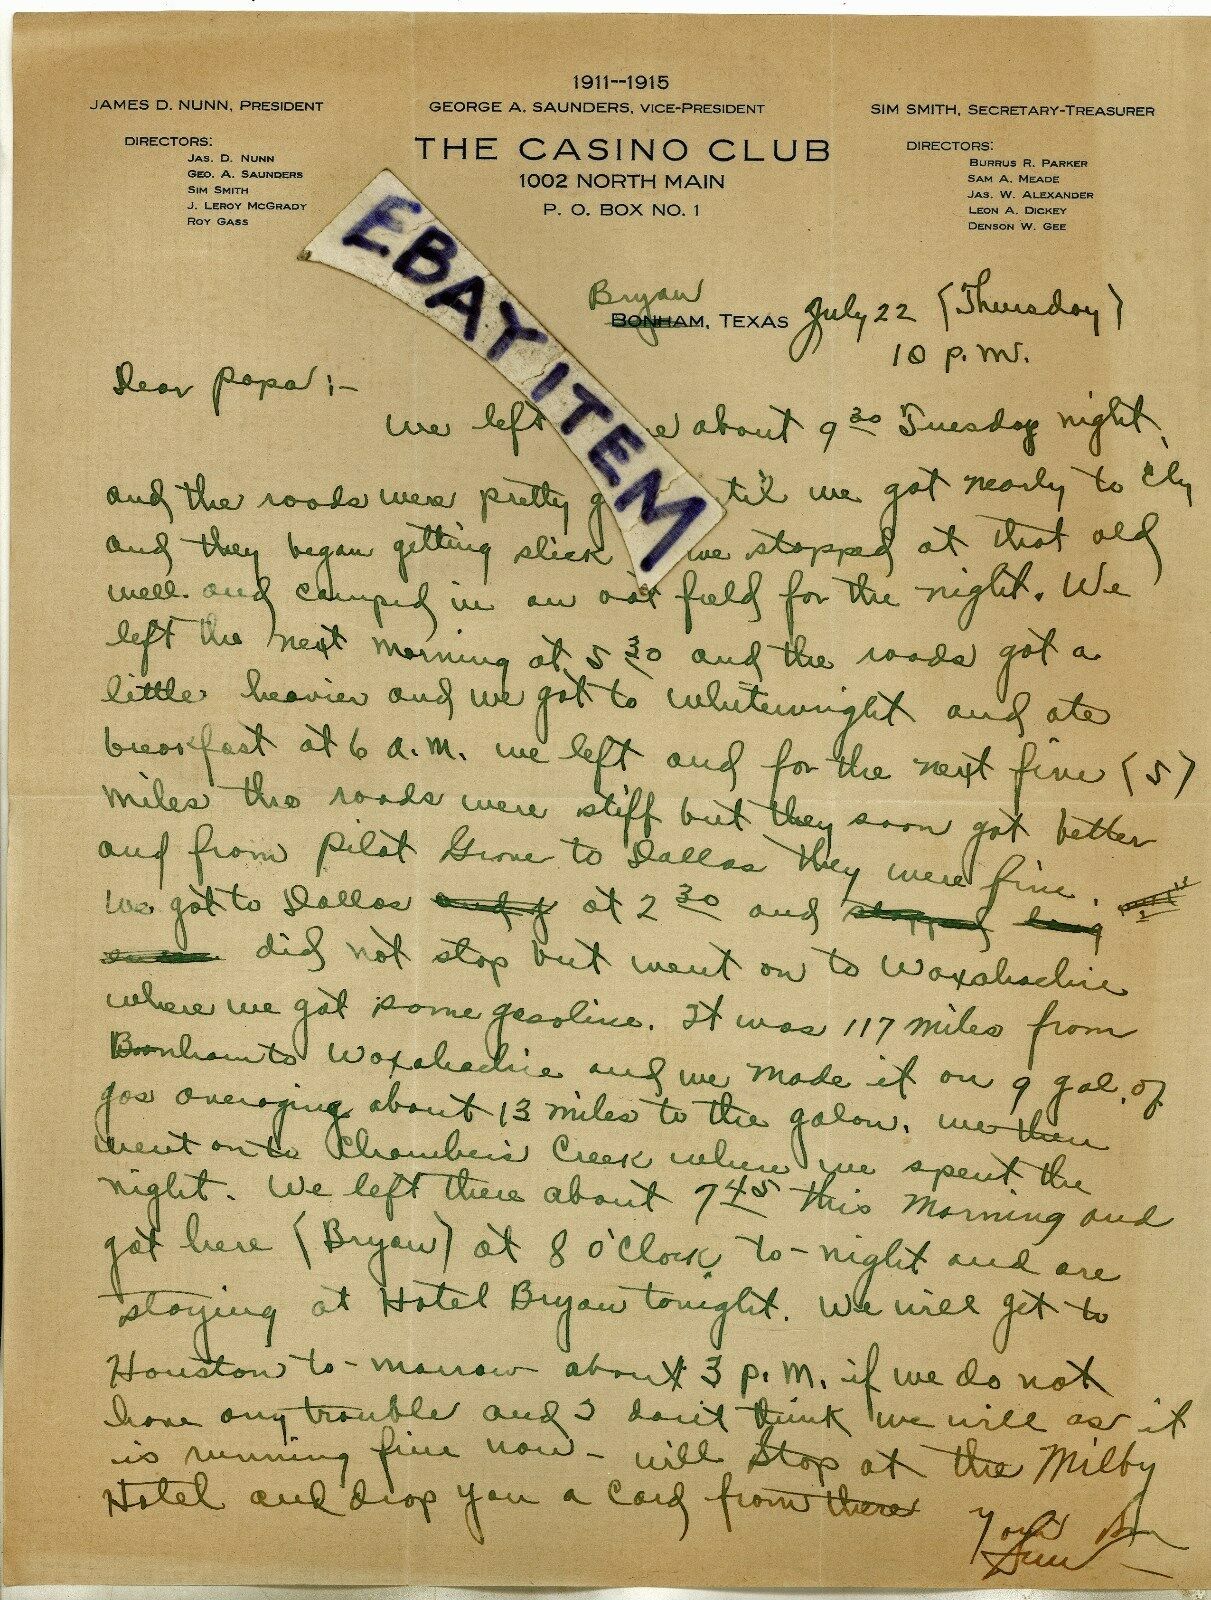 1911--1915
JAMES D. NUNN, PRESIDENT
GEORGE A. SAUNDERS, VICE-PRESIDENT
SIM SMITH, SECRETARY-TREASURER
DIRECTORS:
JAS. D. NUNN
GEO. A. SAUNDERS
SIM SMITH
J. LEROY McGRADY
ROY GASS
THE CASINO CLUB
1002 NORTH MAIN
P. O. BOX NO. 1
DIRECTORS:
BURRUS R. PARKER
SAM A. MEADE
JAS. W. ALEXANDER
LEON A. DICKEY
DENSON W. GEE
EBAY ITEM
Bryan
BONHAM, TEXAS July 22 (Thursday)
10 p.m.
Dear papa:-
We left about 9 30 Tuesday night,
and the roads were pretty til we got nearly to
and they began getting slick we stopped at that old
well and camped in an oat field for the night. We
left the next morning at 5 30 and the roads got a
little heavier and we got to Whitewright and ate
breakfast at 6 a.m. we left and for the next five (5)
miles the roads were stiff but they soon got better
and from Pilot Grove to Dallas they were fine.
We got to Dallas at 2 30 and
did not stop but went on to Waxahachie
where we got some gasoline. It was 117 miles from
Bonham to Waxahachie and we made it on 9 gal. of
gas averaging about 13 miles to the galon. we then
went on to Chamber's Creek where we spent the
night. We left there about 7 45 this morning and
got here (Bryan) at 8 o'clock to-night and are
staying at Hotel Bryan tonight. We will get to
Houston to-morrow about 3 p.m. if we do not
have any trouble and I don't think we will as it
is running fine now - will stop at the Milby
Hotel and drop you a card from there
Your